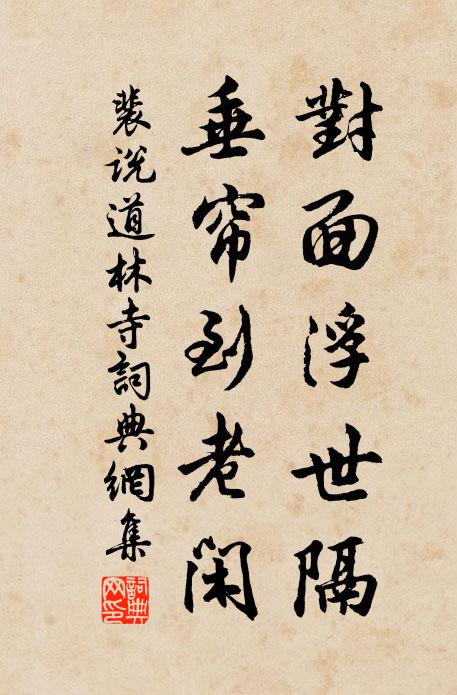 對面浮世隔
垂帘到老闲
裴说道林寺詞典網集
詞典网印